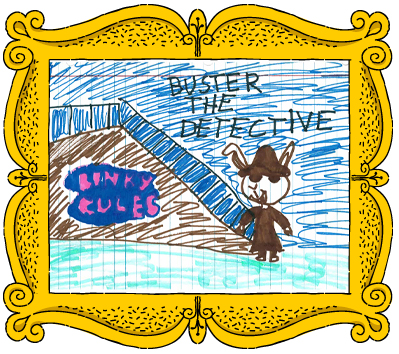 BUSTER
THE
DETECTIVE
BINKY
RULES